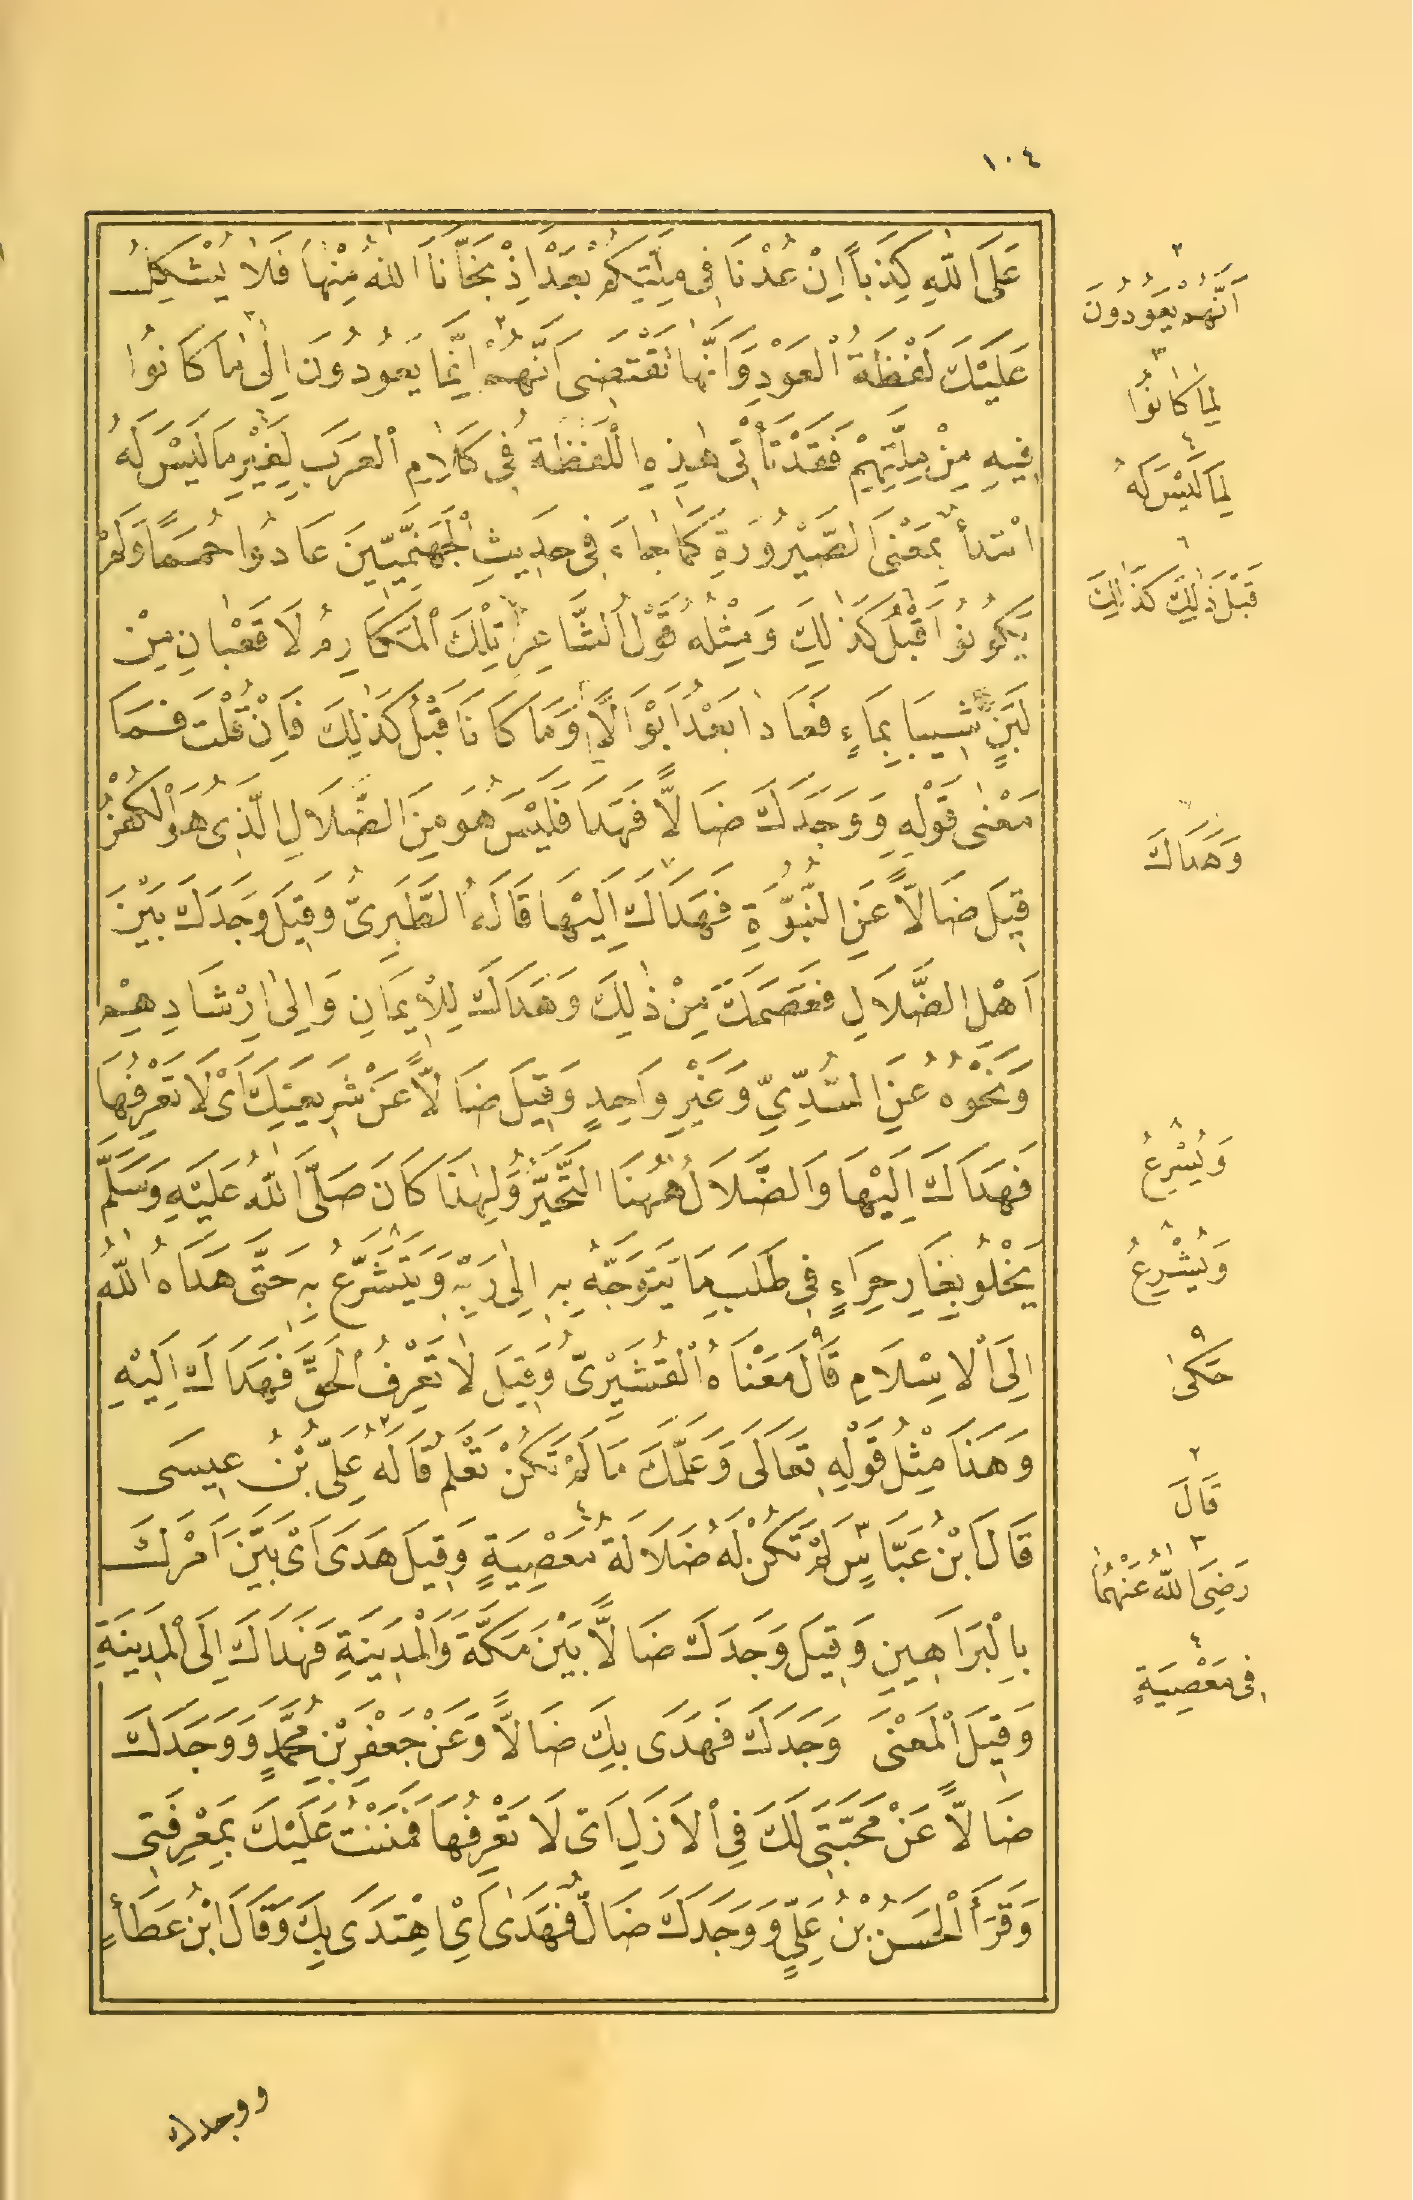 ١٠٤
عَلَى اللّٰهِ كَذِبًا اِنْ عُدْنَا فِى مِلَّتِكُمْ بَعْدَ اِذْ نَجّٰانَا اللّٰهُ مِنْهَا فَلَا يُشْكِلُ
عَلَيْكَ لَفْظَةُ الْعَوْدِ وَاَنَّهَا تَقْتَضِى اَنَّهُمْ اِنَّمَا يَعُودُونَ اِلٰى مَا كَانُوا
فِيهِ مِنْ مِلَّتِهِمْ فَقَدْ تَأْتِى هٰذِهِ اللَّفْظَةُ فِى كَلَامِ الْعَرَبِ لِغَيْرِ مَا لَيْسَ لَهُ
ابْتِدَاءٌ بِمَعْنَى الصَّيْرُورَةِ كَمَا جَاءَ فِى حَدِيثِ الْجَهَنَّمِيِّينَ عَادُوا حُمَمًا وَلَمْ
يَكُونُوا قَبْلُ كَذٰلِكَ وَمِثْلُهُ قَوْلُ الشَّاعِرِ تِلْكَ الْمَكَارِمُ لَا قَعْبَانِ مِنْ
لَبَنٍ شِيبَا بِمَاءٍ فَعَادَا بَعْدُ اَبْوَالًا وَمَا كَانَا قَبْلُ كَذٰلِكَ فَاِنْ قُلْتَ فَمَا
مَعْنٰى قَوْلِهِ وَوَجَدَكَ ضَالًّا فَهَدَا فَلَيْسَ هُوَ مِنَ الضَّلَالِ الَّذِى هُوَ الْكُفْرُ
قِيلَ ضَالًّا عَنِ النُّبُوَّةِ فَهَدَاكَ اِلَيْهَا قَالَهُ الطَّبَرِىُّ وَقِيلَ وَجَدَكَ بَيْنَ
اَهْلِ الضَّلَالِ فَعَصَمَكَ مِنْ ذٰلِكَ وَهَدَاكَ لِلْاِيمَانِ وَاِلٰى اِرْشَادِهِمْ
وَنَحْوُهُ عَنِ السُّدِّىِّ وَغَيْرِ وَاحِدٍ وَقِيلَ ضَالًّا عَنْ شَرِيعَتِكَ اَىْ لَا تَعْرِفُهَا
فَهَدَاكَ اِلَيْهَا وَالضَّلَالُ هٰهُنَا التَّحَيُّرُ وَلِهٰذَا كَانَ صَلَّى اللّٰهُ عَلَيْهِ وَسَلَّمَ
يَخْلُو بِغَارِ حِرَاءٍ فِى طَلَبِ مَا يَتَوَجَّهُ بِهِ اِلٰى رَبِّهِ وَيَتَشَرَّعُ بِهِ حَتَّى هَدَاهُ اللّٰهُ
اِلَى الْاِسْلَامِ قَالَ مَعْنَاهُ الْقُشَيْرِىُّ وَقِيلَ لَا تَعْرِفُ الْحَقَّ فَهَدَاكَ اِلَيْهِ
وَهَذَا مِثْلُ قَوْلِهِ تَعَالَى وَعَلَّمَكَ مَا لَمْ تَكُنْ تَعْلَمُ قَالَهُ عَلِىُّ بْنُ عِيسَى
قَالَ ابْنُ عَبَّاسٍ لَمْ تَكُنْ لَهُ ضَلَالَةُ مَعْصِيَةٍ وَقِيلَ هَدَى اَىْ بَيَّنَ اَمْرَكَ
بِالْبَرَاهِينِ وَقِيلَ وَجَدَكَ ضَالًّا بَيْنَ مَكَّةَ وَالْمَدِينَةِ فَهَدَاكَ اِلَى الْمَدِينَةِ
وَقِيلَ الْمَعْنَى وَجَدَكَ فَهَدَى بِكَ ضَالًّا وَعَنْ جَعْفَرِ بْنِ مُحَمَّدٍ وَوَجَدَكَ
ضَالًّا عَنْ مَحَبَّتِى لَكَ فِى الْاَزَلِ اَىْ لَا تَعْرِفُهَا فَمَنَنْتُ عَلَيْكَ بِمَعْرِفَتِى
وَقَرَأَ الْحَسَنُ بْنُ عَلِىٍّ وَوَجَدَكَ ضَالٌّ فَهَدٰى اَىْ اِهْتَدَى بِكَ وَقَالَ ابْنُ عَطَاءٍ
ووجدك
٢
اَنَّهُمْ يَعُودُونَ
٣
لِمَا كَانُوا
٤
لِمَا لَيْسَ لَهُ
٦
قَبْلَ ذٰلِكَ كَذٰلِكَ
٧
وَهَدَاكَ
٨
وَيُسْرِعُ
٨
وَيُشْرِعُ
٩
حَكٰى
٢
قَالَ
٣
رَضِىَ اللّٰهُ عَنْهُمَا
٤
فِى مَعْصِيَةٍ